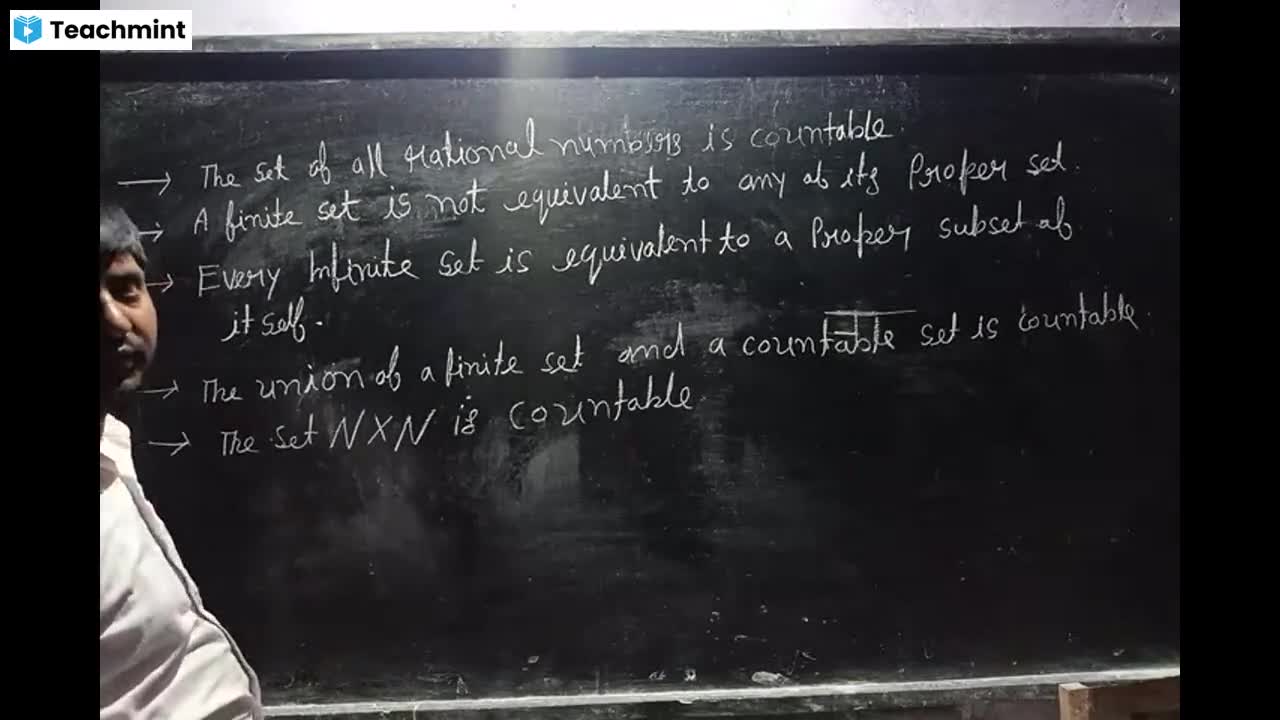 Teachmint
→ The set of all rational numbers is countable.
→ A finite set is not equivalent to any of its Proper set.
→ Every Infinite set is equivalent to a Proper subset of
it self.
→ The union of a finite set and a countable set is countable.
→ The set N×N is countable.